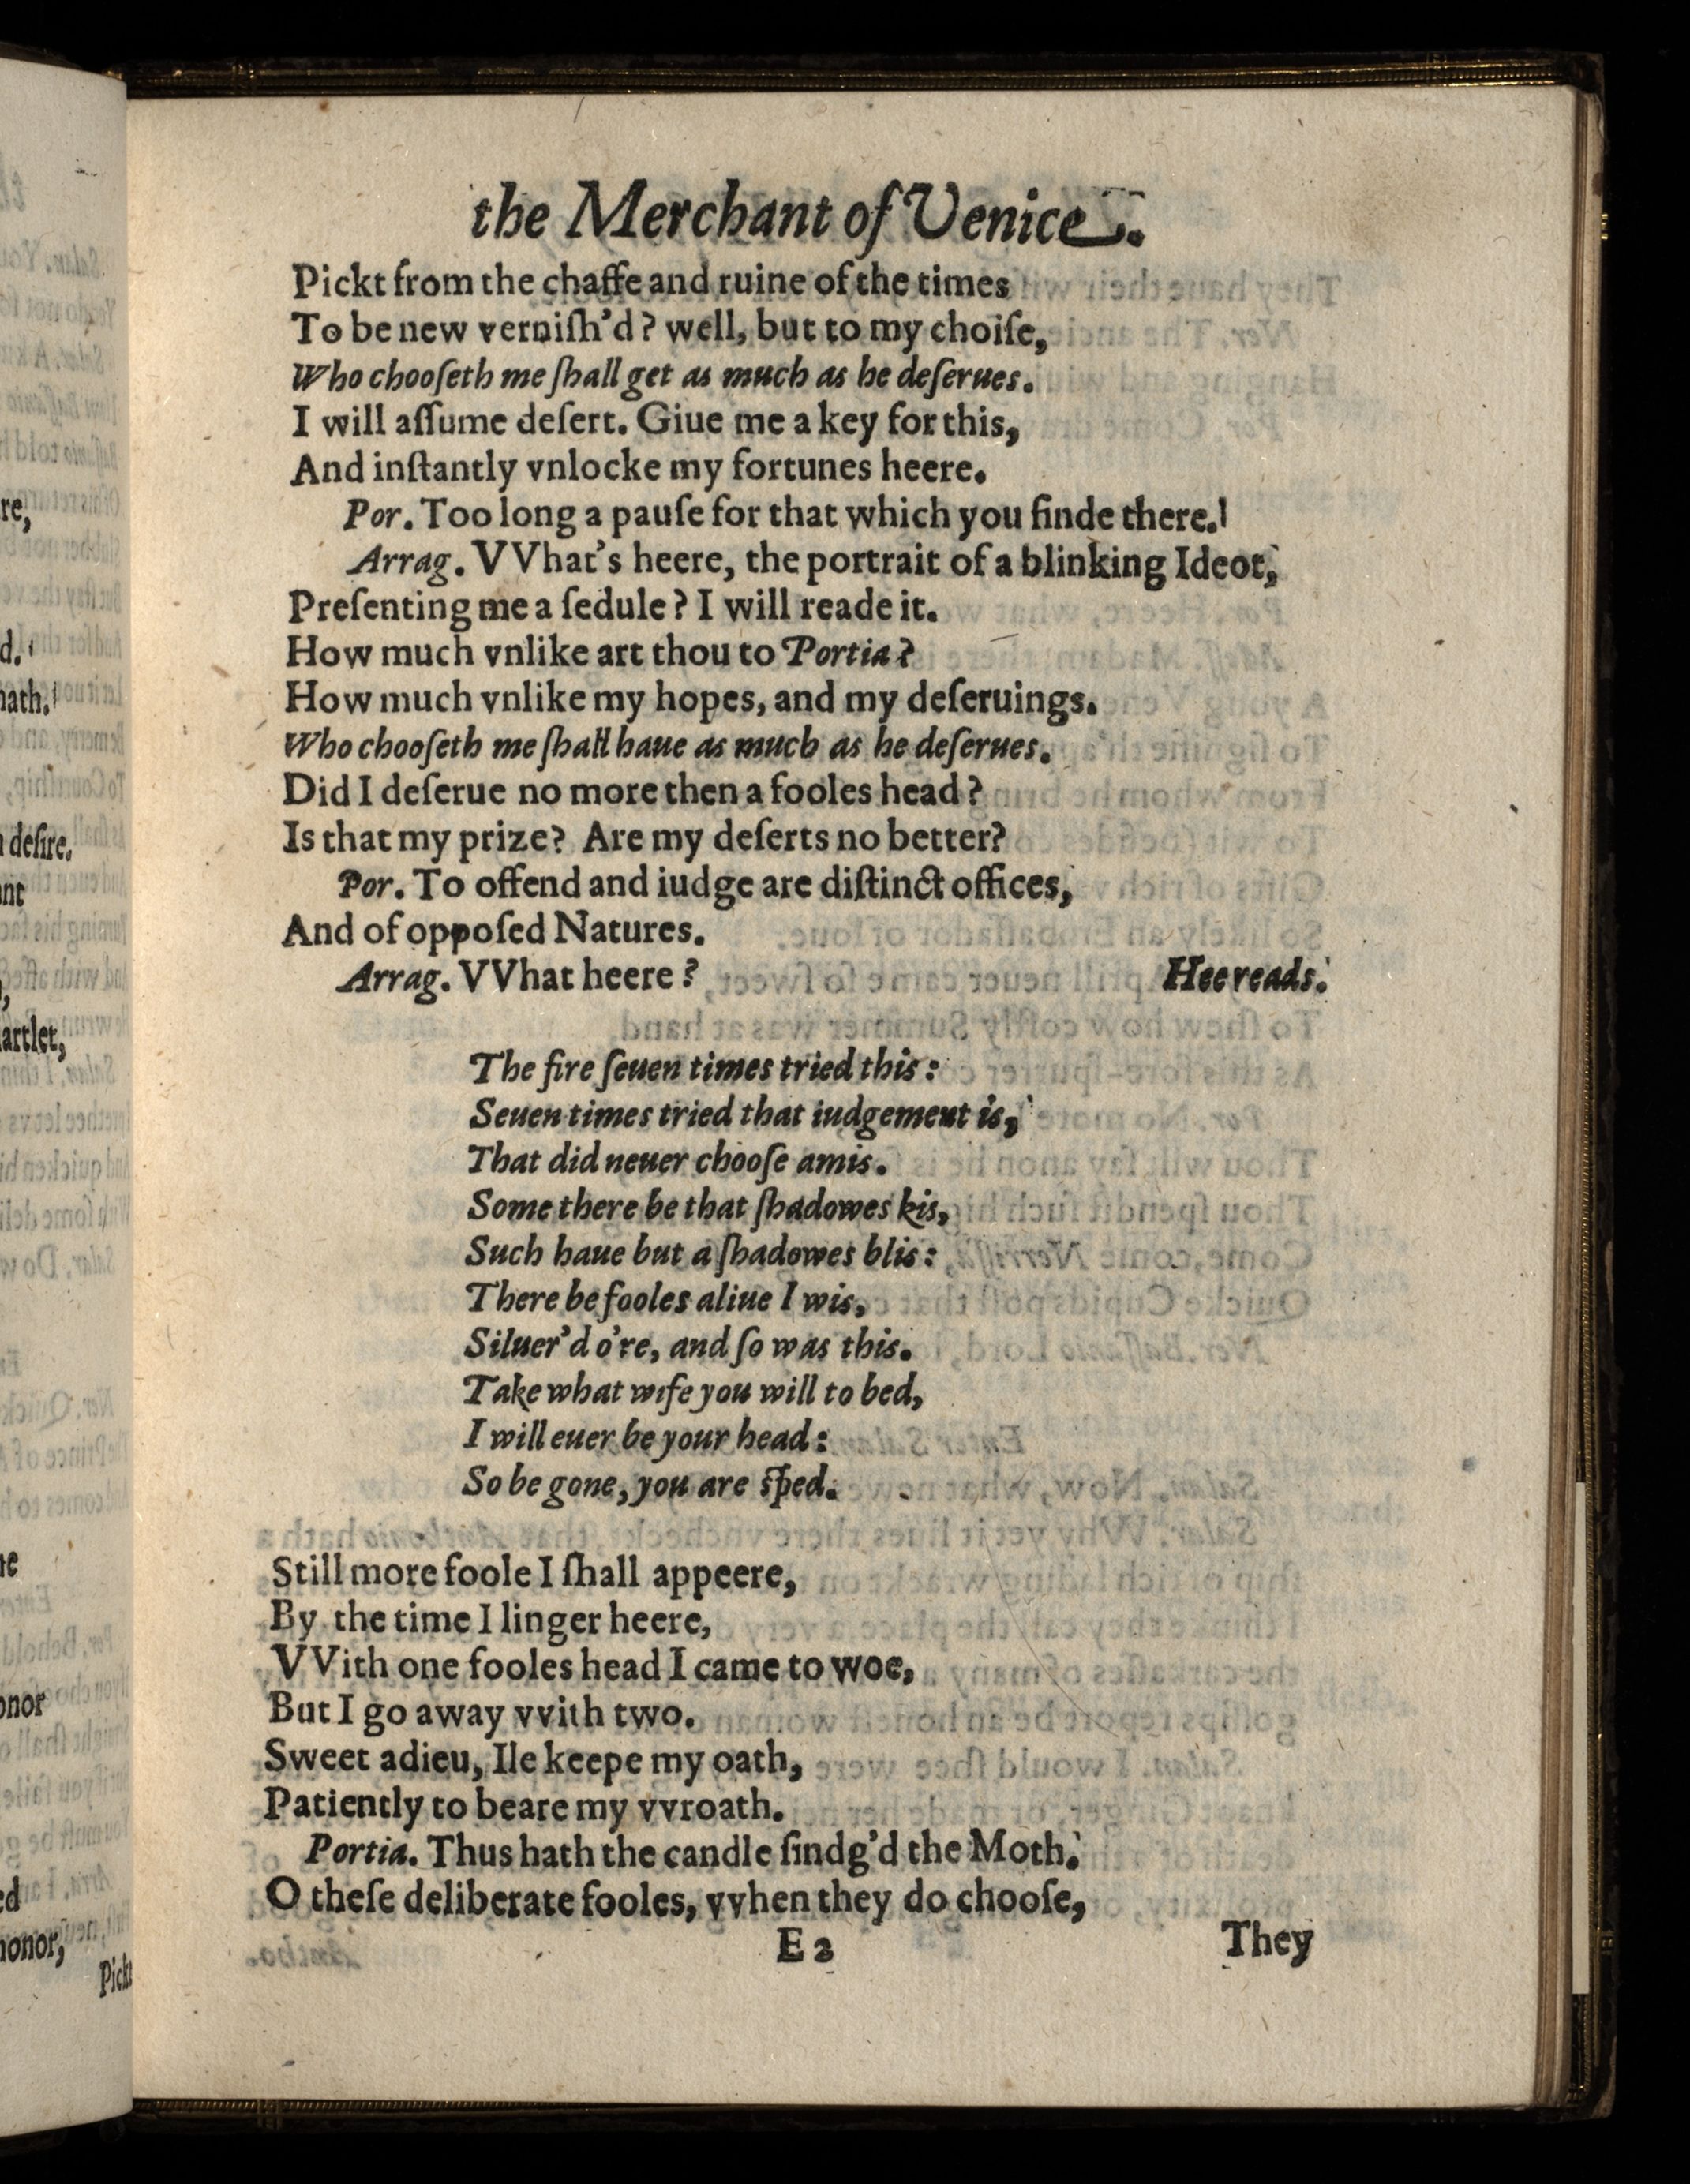 the Merchant of Venice.
Pickt from the chaffe and ruine of the times
To be new verniſh’d? well, but to my choiſe,
Who chooſeth me ſhall get as much as he deſerues.
I will aſſume deſert. Giue me a key for this,
And inſtantly vnlocke my fortunes heere.
Por. Too long a pauſe for that which you finde there.
Arrag. VVhat’s heere, the portrait of a blinking Ideot,
Preſenting me a ſedule? I will reade it.
How much vnlike art thou to Portia?
How much vnlike my hopes, and my deſeruings.
Who chooſeth me ſhall haue as much as he deſerues.
Did I deſerue no more then a fooles head?
Is that my prize? Are my deſerts no better?
Por. To offend and iudge are diſtinct offices,
And of oppoſed Natures.
Arrag. VVhat heere? Hee reads.
The fire ſeuen times tried this:
Seuen times tried that iudgement is,
That did neuer chooſe amis.
Some there be that ſhadowes kis,
Such haue but a ſhadowes blis:
There be fooles aliue I wis,
Siluer’d o’re, and ſo was this.
Take what wife you will to bed,
I will euer be your head:
So be gone, you are ſped.
Still more foole I ſhall appeere,
By the time I linger heere,
VVith one fooles head I came to woe,
But I go away vvith two.
Sweet adieu, Ile keepe my oath,
Patiently to beare my vvroath.
Portia. Thus hath the candle ſindg’d the Moth.
O theſe deliberate fooles, vvhen they do chooſe,
E2 They
re,
d.
hath.
deſire.
artlet,
onor
honor,
Pickt